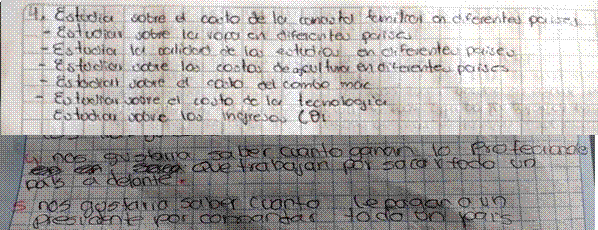 4. Estudiar sobre el costo de la canasta familiar en diferentes paises
- Estudiar sobre la ropa en diferentes paises
- Estudiar la calidad de los estudios en diferentes paises
- Estudiar sobre los costos de cultura en diferentes paises
- Estudiar sobre el costo del combo mac
- Estudiar sobre el costo de la tecnologia
Estudiar sobre los ingresos
4 nos gustaria saber cuanto ganan lo
que trabajan por sacar todo un
pais a delante.
5 nos gustaria saber cuanto le pagan a un
presidente por comandar todo un pais